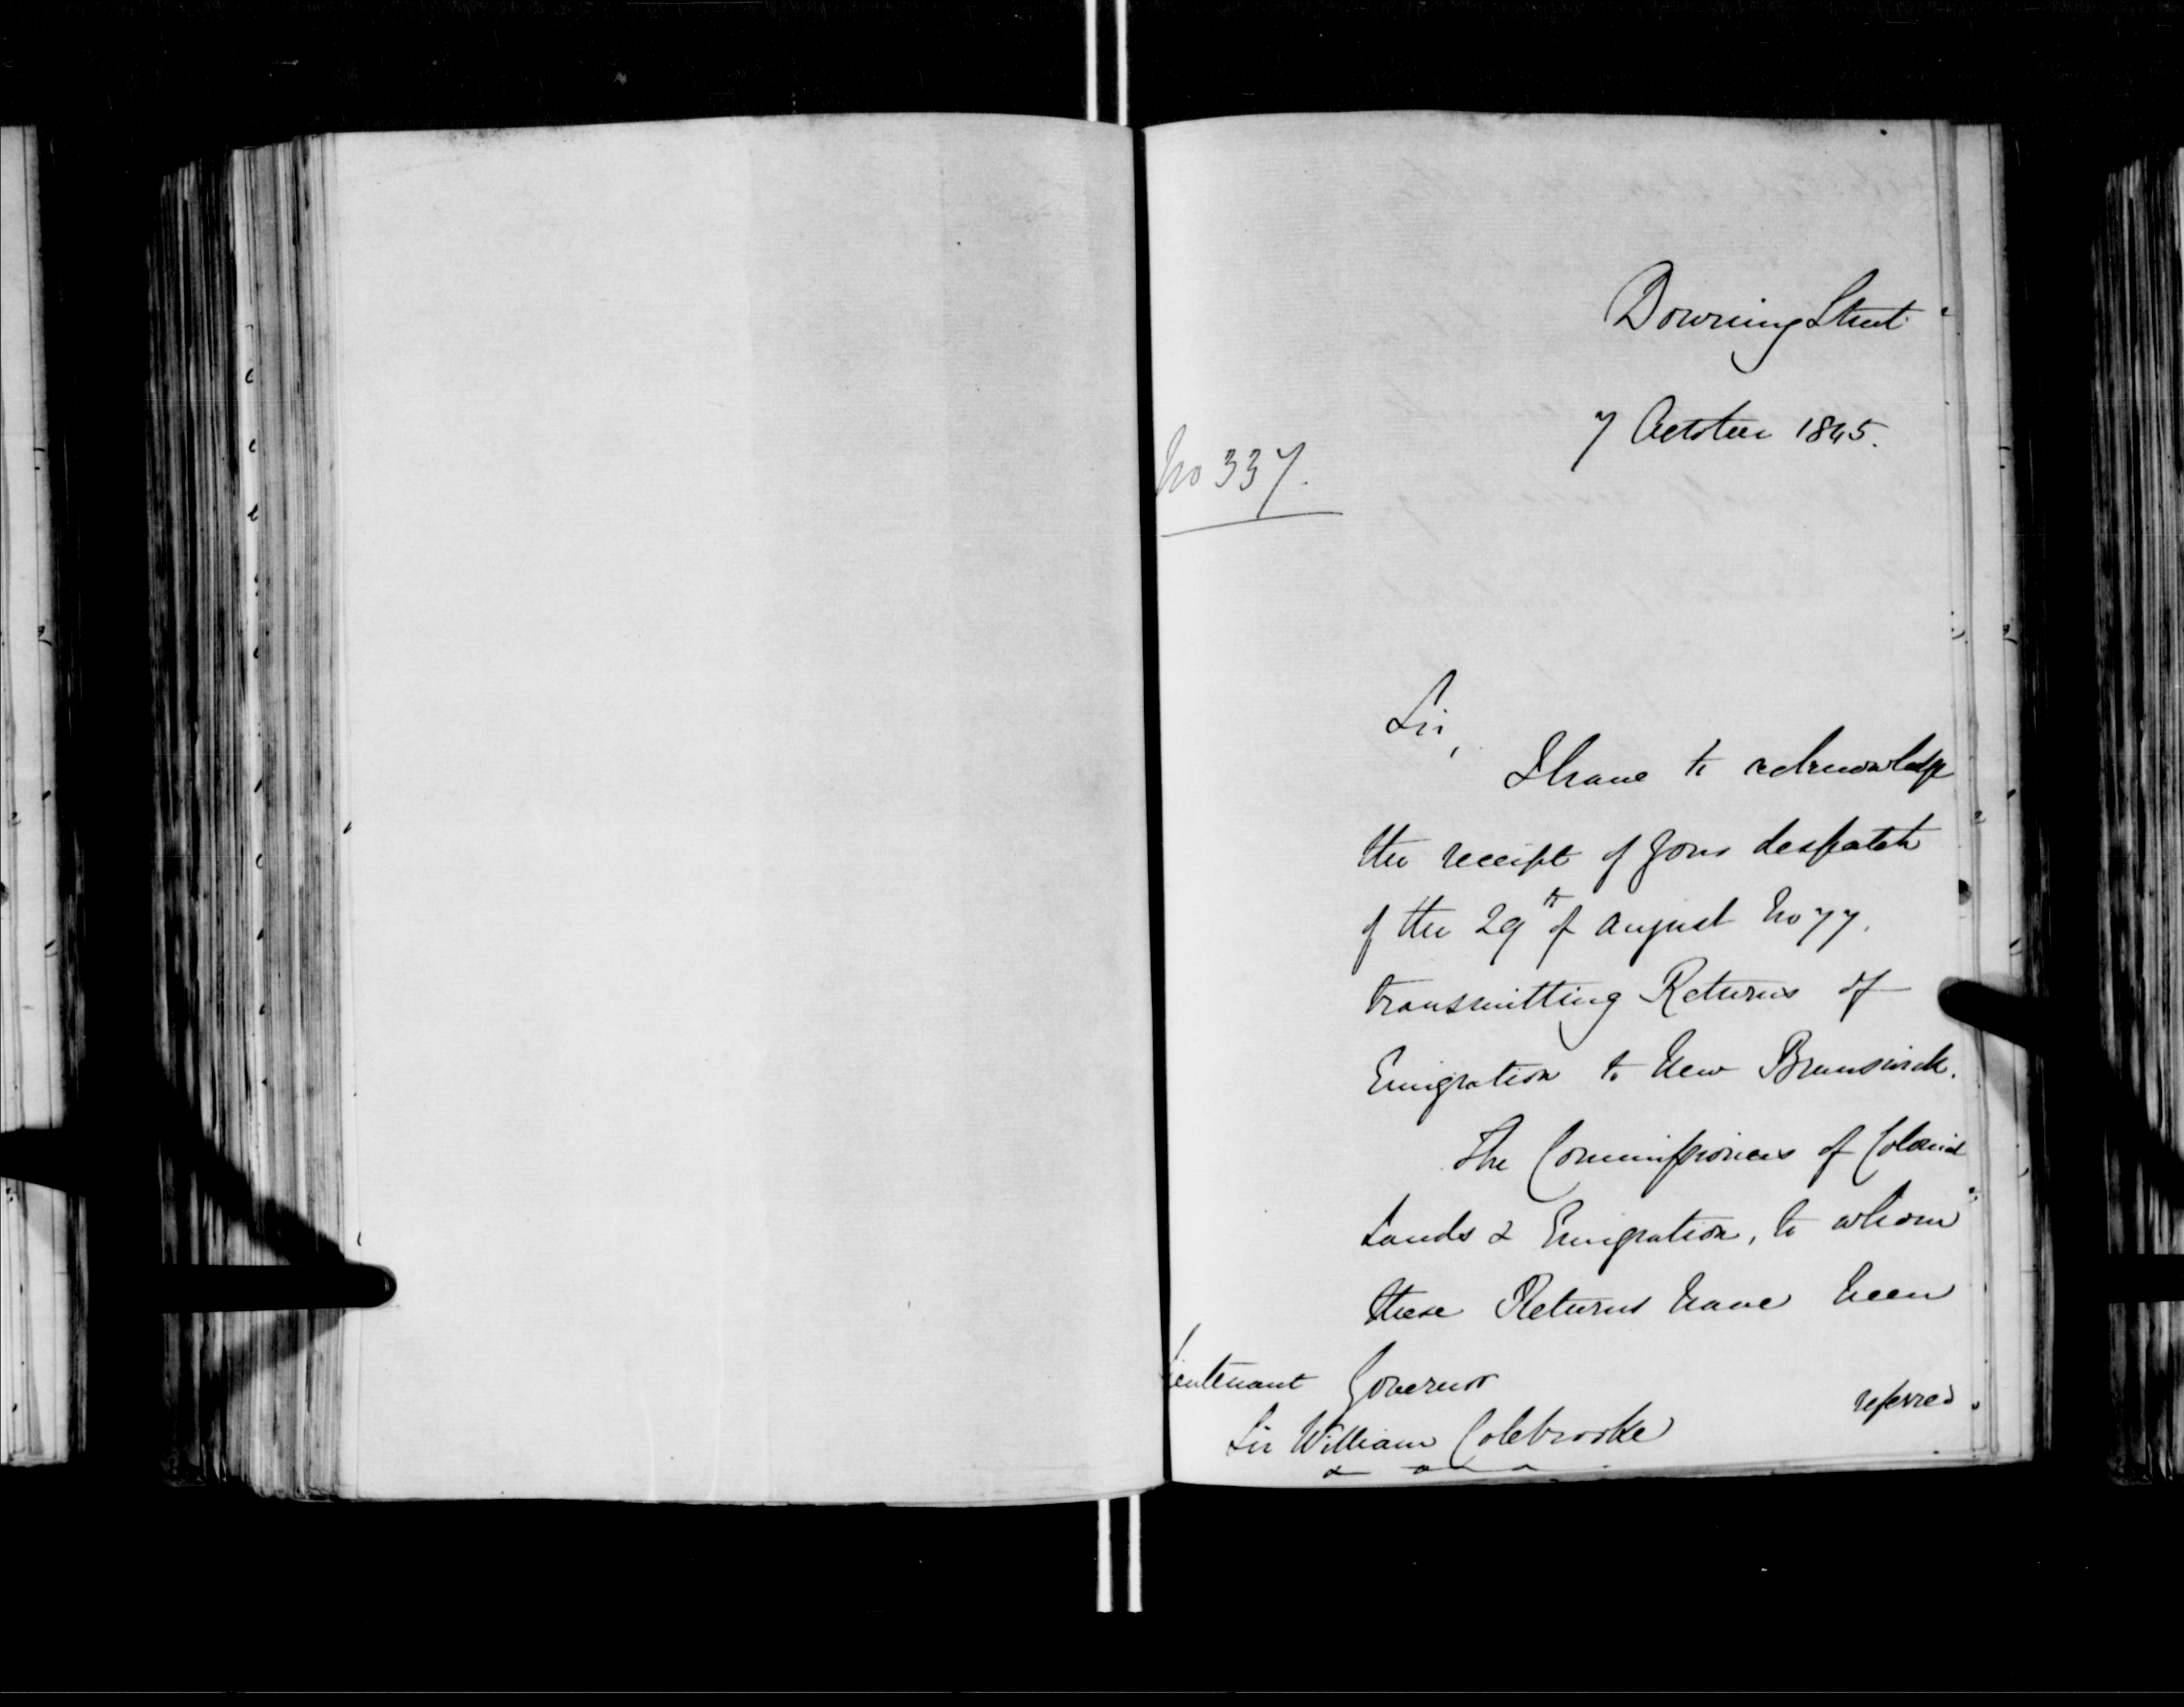 Downing Street
7 October 1845.
No 337.
Sir,
I have to acknowledge
the receipt of your despatch
of the 29th of August No 77.
transmitting Returns of
Emigration to New Brunswick.
The Commissioners of Colonial
Lands & Emigration, to whom
these Returns have been
referred
Lieutenant Governor
Sir William Colebrooke